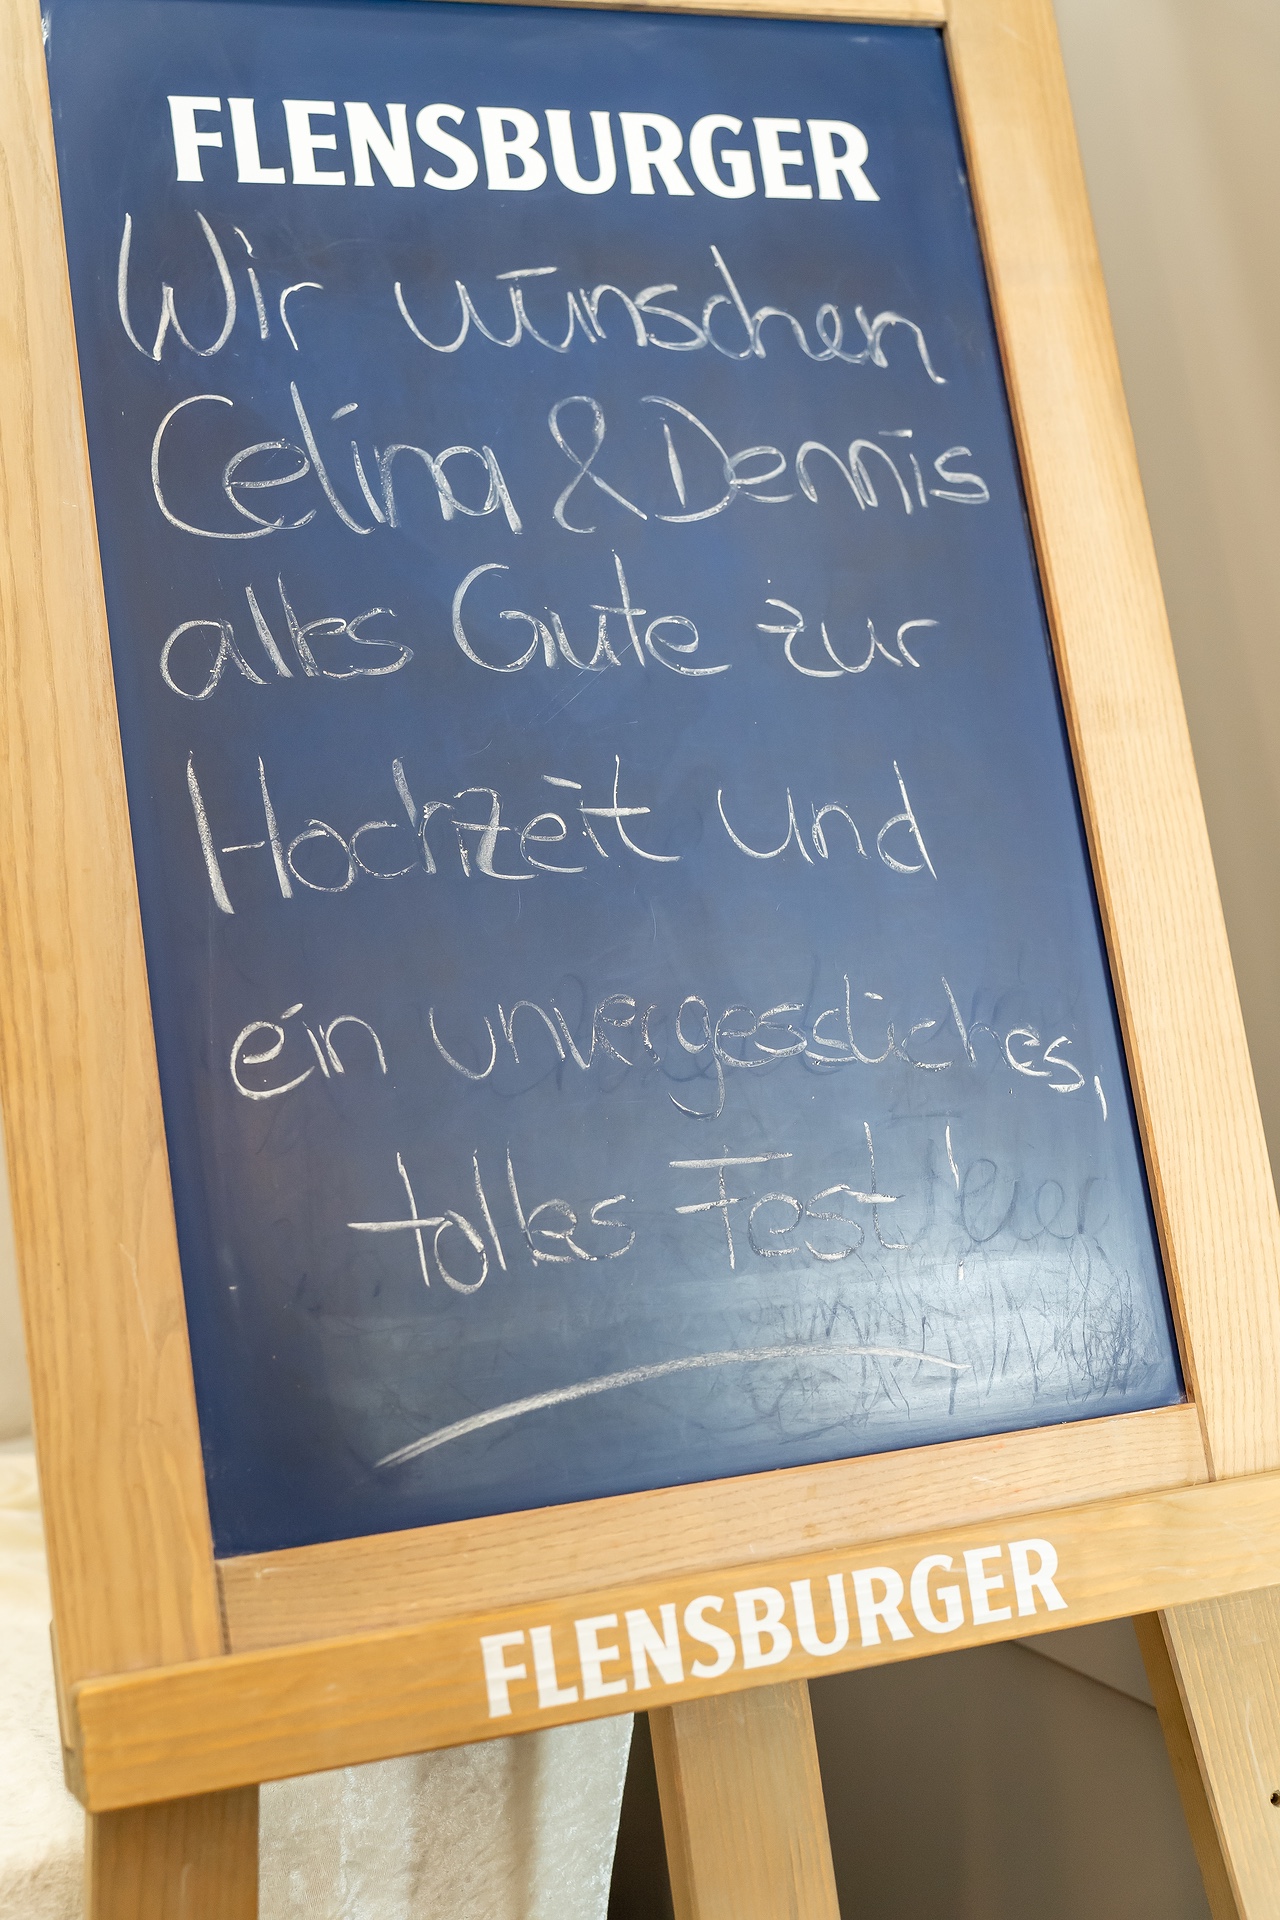 FLENSBURGER
Wir wünschen
Celina & Dennis
alles Gute zur
Hochzeit und
ein unvergessliches,
tolles Fest!
FLENSBURGER